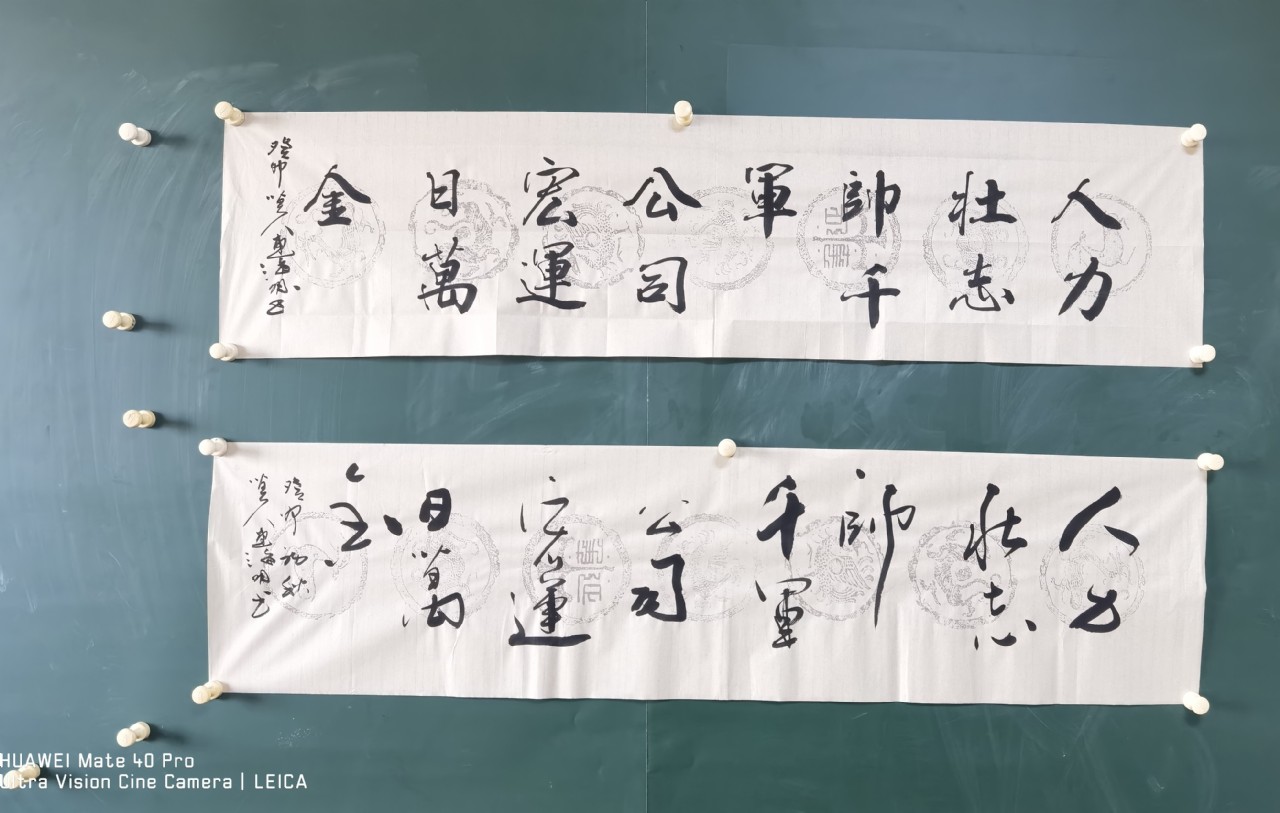 人力
壮志
帥千
軍
公司
宏運
日萬
金
癸卯
人力
壮志
帥
千軍
公司
宏運
日萬
金
癸卯初秋
HUAWEI Mate 40 Pro
Ultra Vision Cine Camera | LEICA